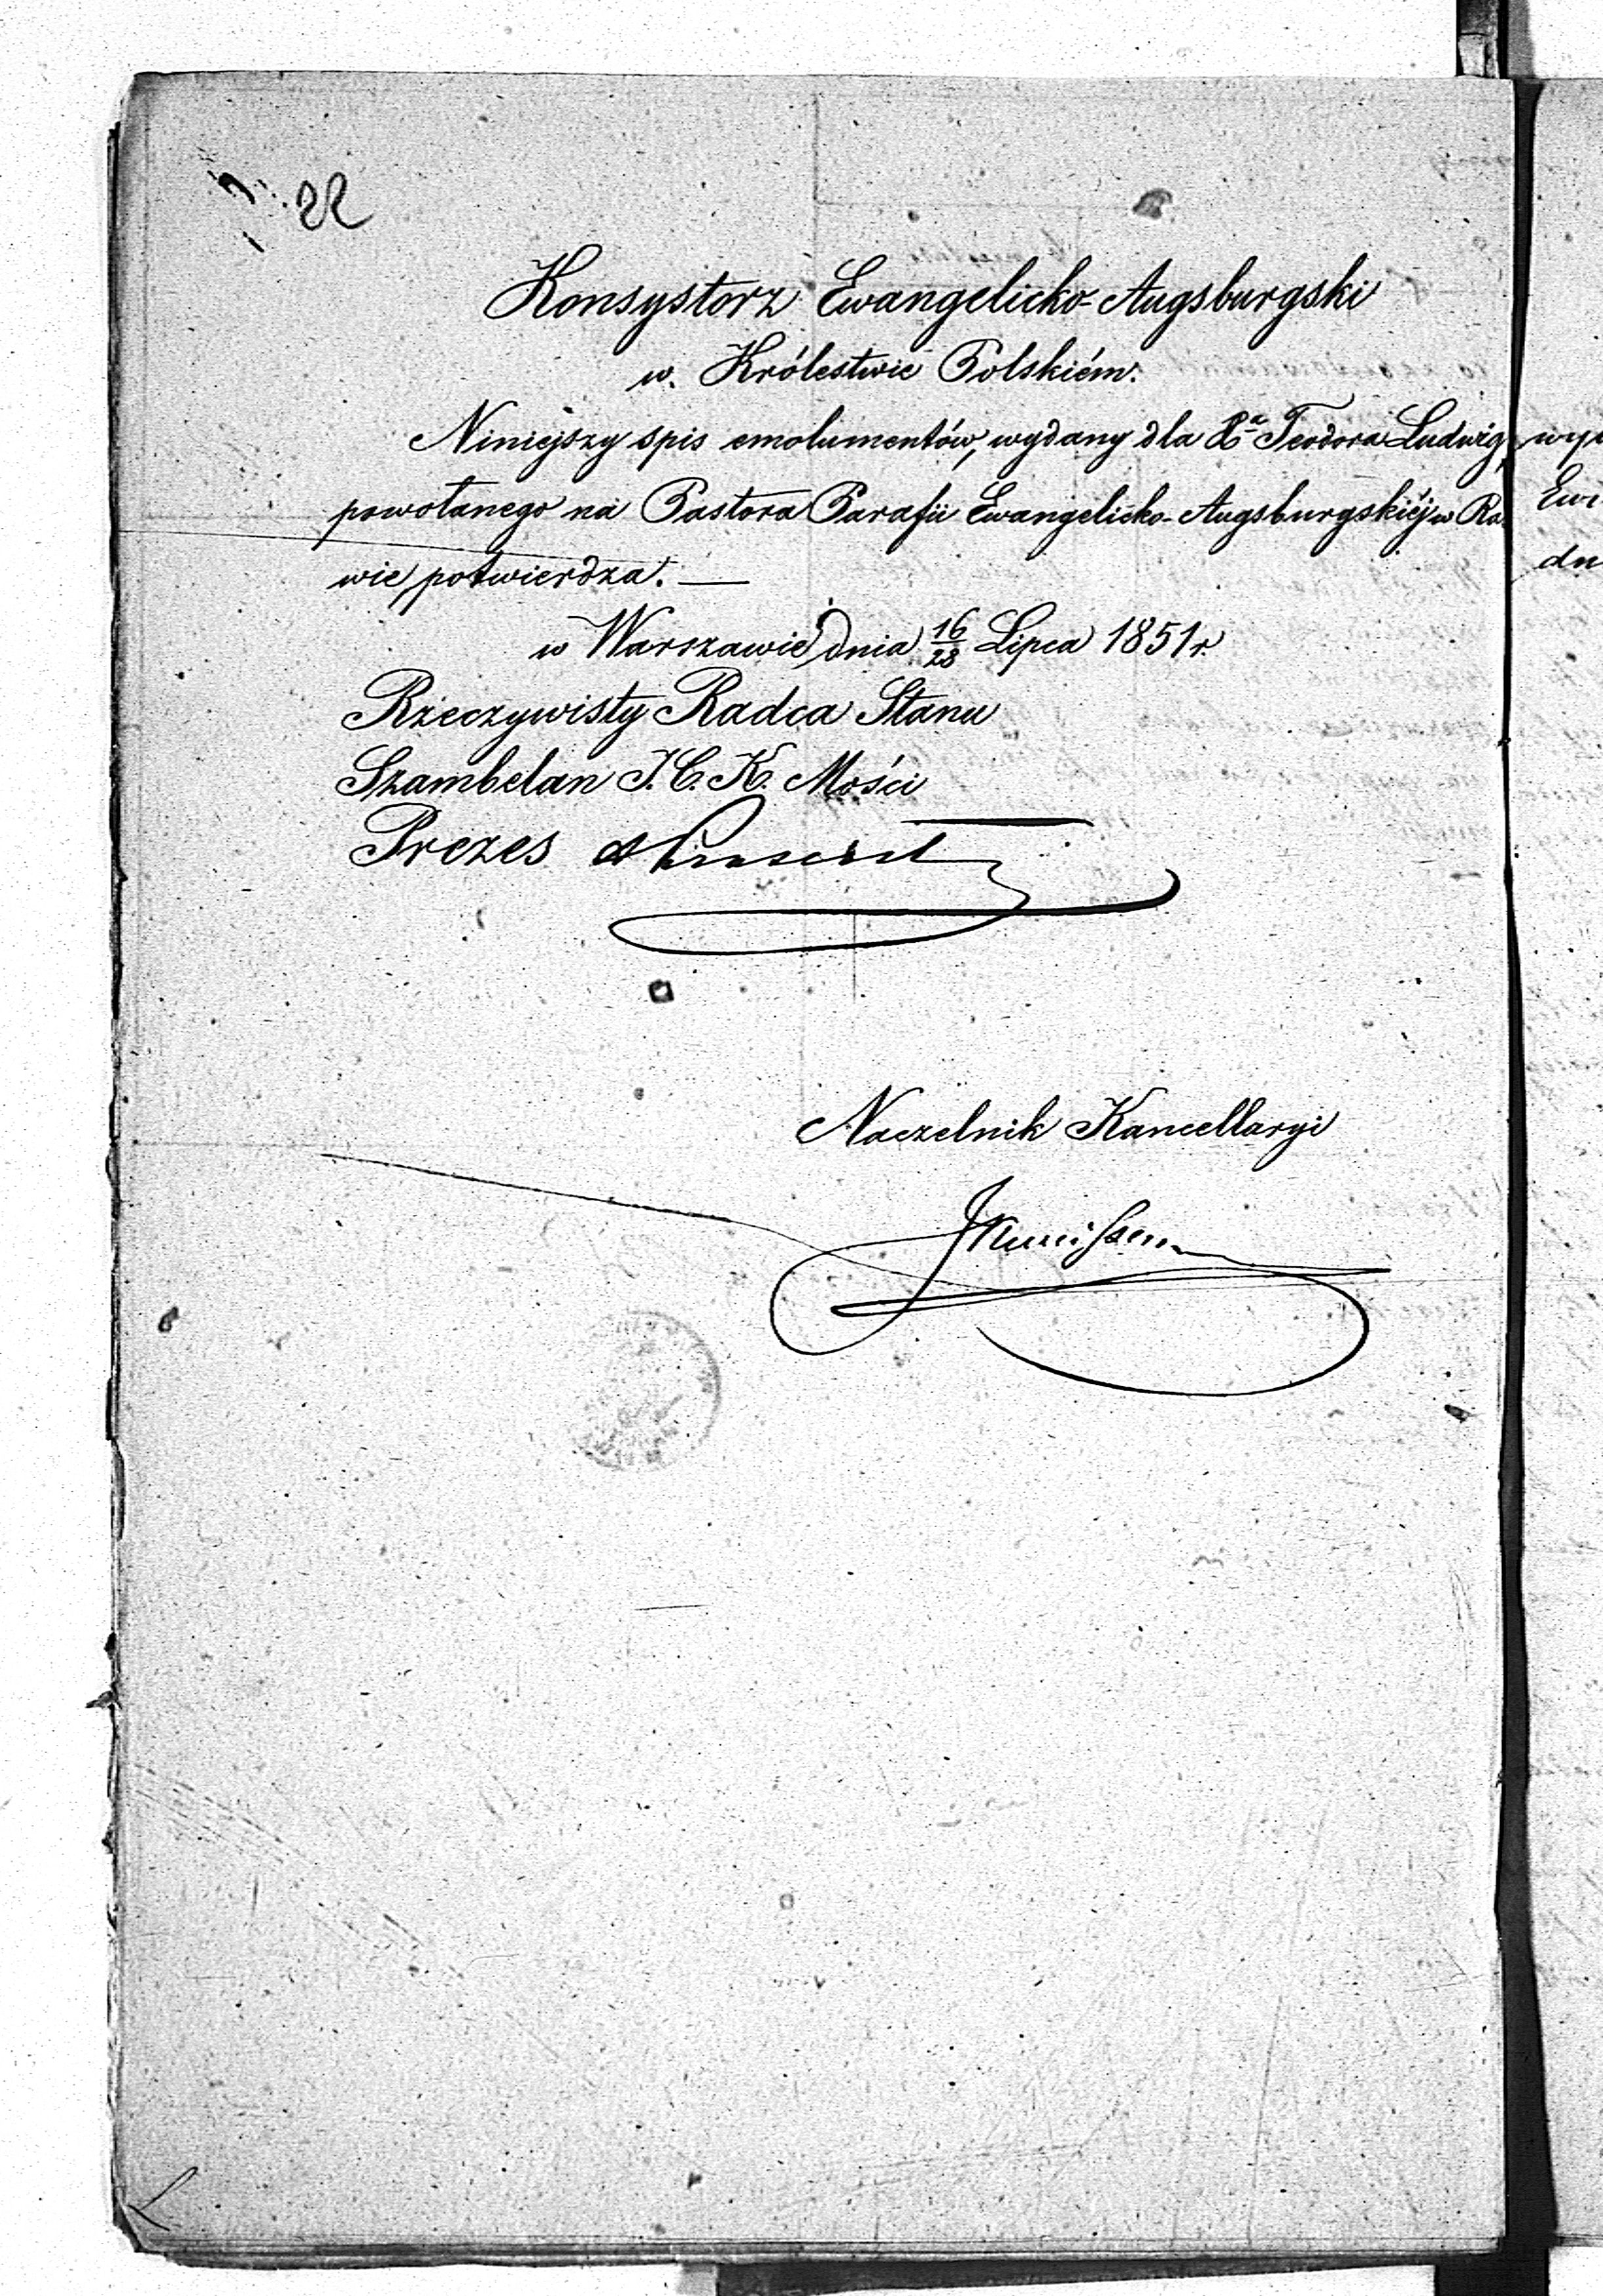 22
Konsystorz Ewangelicko-Augsburgski
w. Królestwie Polskiém.
Niniejszy spis emolumentów, wydany dla Xa Teodora Ludwig,
powołanego na Pastora Parafii Ewangelicko-Augsburgskiéj w Ra
wie, potwierdza. —
w Warszawie, dnia 16/28 Lipca 1851 r.
Rzeczywisty Radca Stanu
Szambelan J. C. K. Mości
Prezes
Naczelnik Kancellaryi